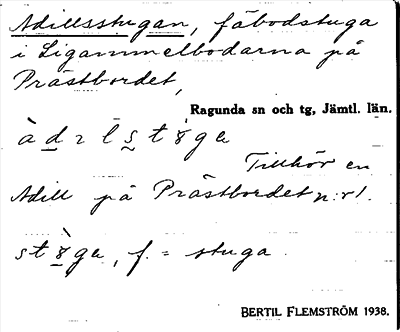 Adillsstugan, fäbodstuga
i Ligammelbodarna på
Prästbordet,
Ragunda sn och tg, Jämtl. län.
Tillhör en
Adill på Prästbordet n:r 1.
f. = stuga
BERTIL FLEMSTRÖM 1938.